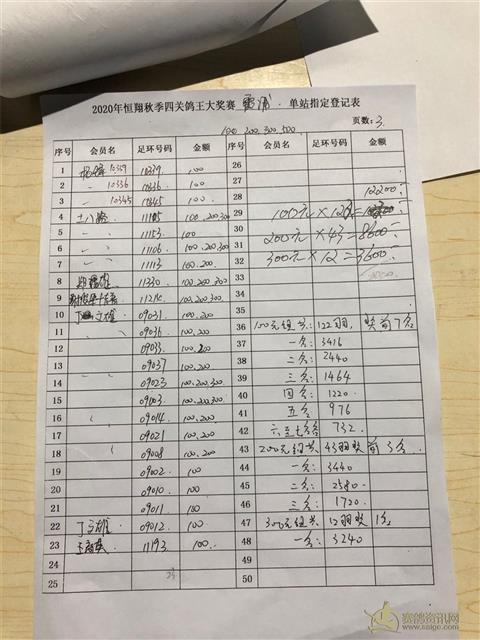 2020年恒翔秋季四关鸽王大奖赛 单站指定登记表
100.200.300.500
页数:3
序号 会员名 足环号码 金额 序号 会员名 足环号码 金额
1 10339 10339 100 26
2 〃 10336 10336 100 27
3 〃 10345 10345 100 28 12200
4 十八 11105 100.200.300 29 100元×122=
5 〃 11153 100 30 200元×43=8600
6 〃 11106 100.200.300 31 300元×12=3600
7 〃 11113 100.200 32
8 11330 100.200.300 33
9 11210 100.200.300 34
10 09031 100.200 35
11 〃 09036 100.200 36 100元组共:122羽,奖前7名
12 09033 100.200 37 一名:3416
13 09037 100.200 38 二名:2440
14 09023 100.200.300 39 三名:1464
15 09003 100.200.300 40 四名:1220
16 〃 09014 100.200 41 五名 976
17 09021 100.200 42 六至七名 732
18 〃 09008 100.200 43 200元组共 43羽奖前3名
19 09002 100 44 一名:3440
20 09010 100 45 二名:2580
21 09011 100 46 三名:1720
22 09012 100 47 300元组共 12羽奖 1名
23 11193 100 48 一名:3240
24 49
25 50
赛鸽资讯网
www.saige.com